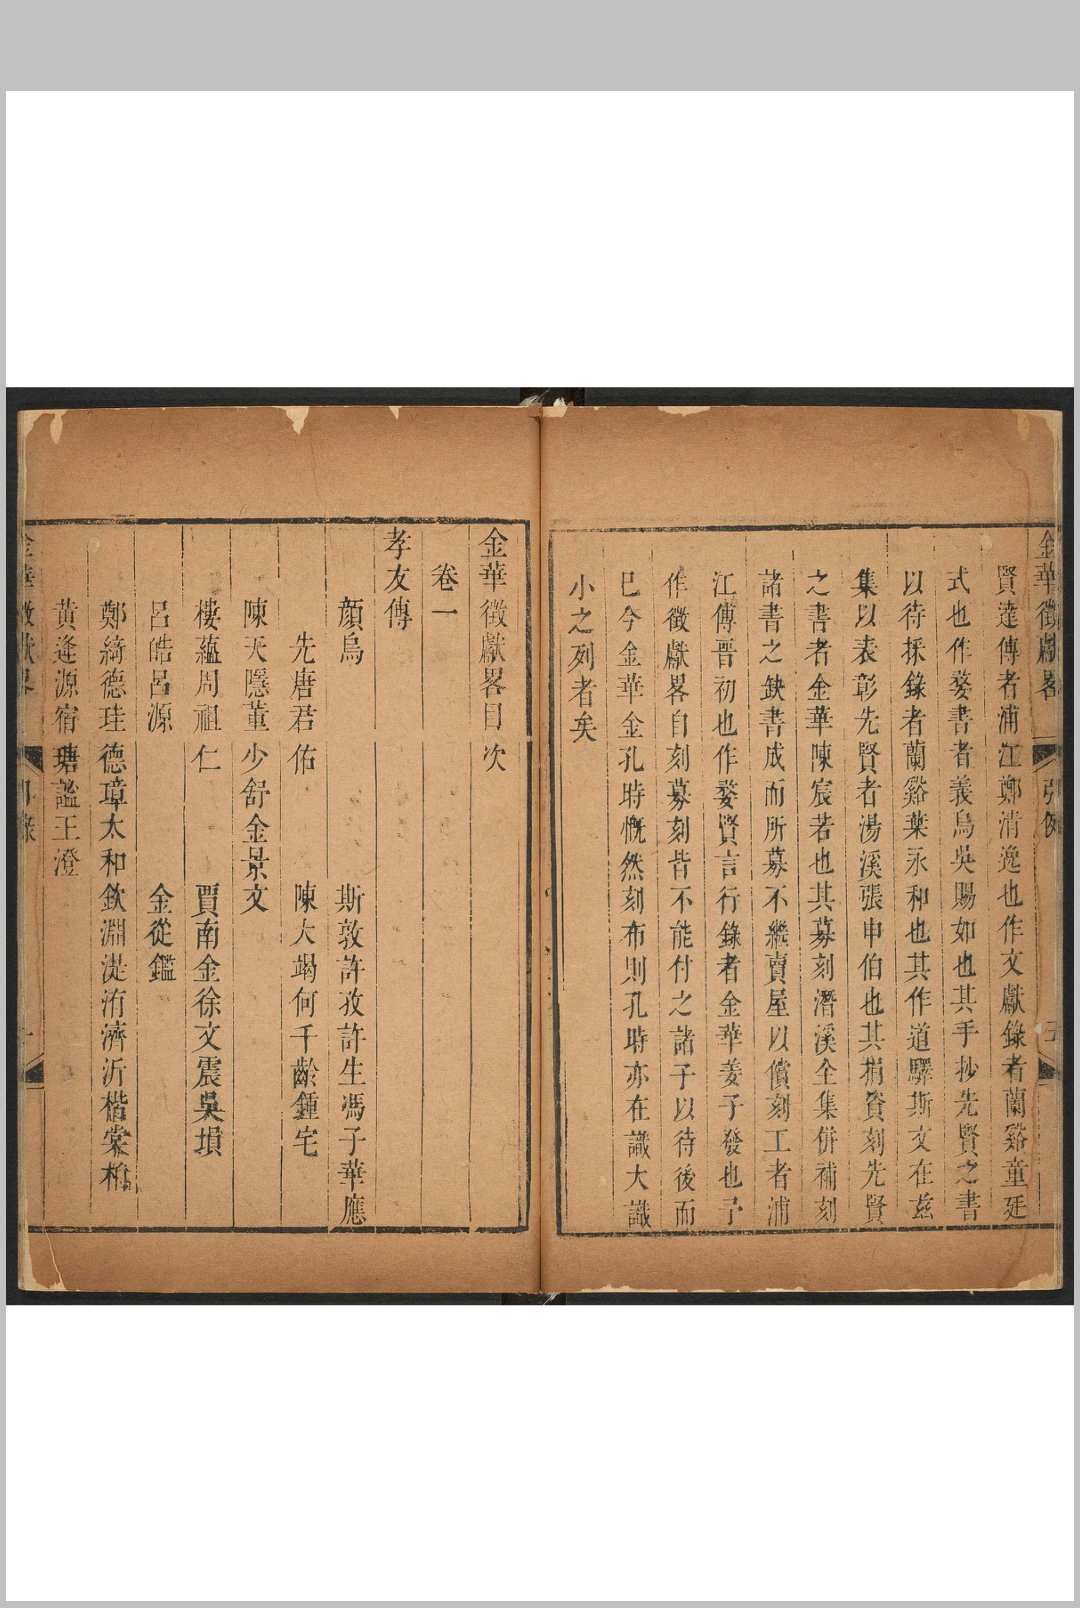 金華徵獻畧
引例
賢達傳者浦江鄭清逸也作文獻錄者蘭谿童廷
式也作婺書者義烏吳賜如也其手抄先賢之書
以待採錄者蘭谿葉永和也其作道驛斯文在玆
集以表彰先賢者湯溪張申伯也其捐資刻先賢
之書者金華陳宸若也其募刻潛溪全集併補刻
諸書之缺書成而所募不繼賣屋以償刻工者浦
江傅晉初也作婺賢言行錄者金華姜子發也予
作徵獻畧自刻募刻皆不能付之諸子以待後而
巳今金華金孔時慨然刻布則孔時亦在識大識
小之列者矣
金華徵獻畧目次
卷一
孝友傳
顔烏 斯敦許孜許生馮子華應
先唐君佑 陳大竭何千齡鍾宅
陳天隱董少舒金景文
樓蘊周祖仁 賈南金徐文震吳塤
呂皓呂源 金從鑑
鄭綺德珪德璋太和欽淵湜洧濟沂楷棠柏
黃逢源宿瑭謐王澄
金華徵獻畧
目錄